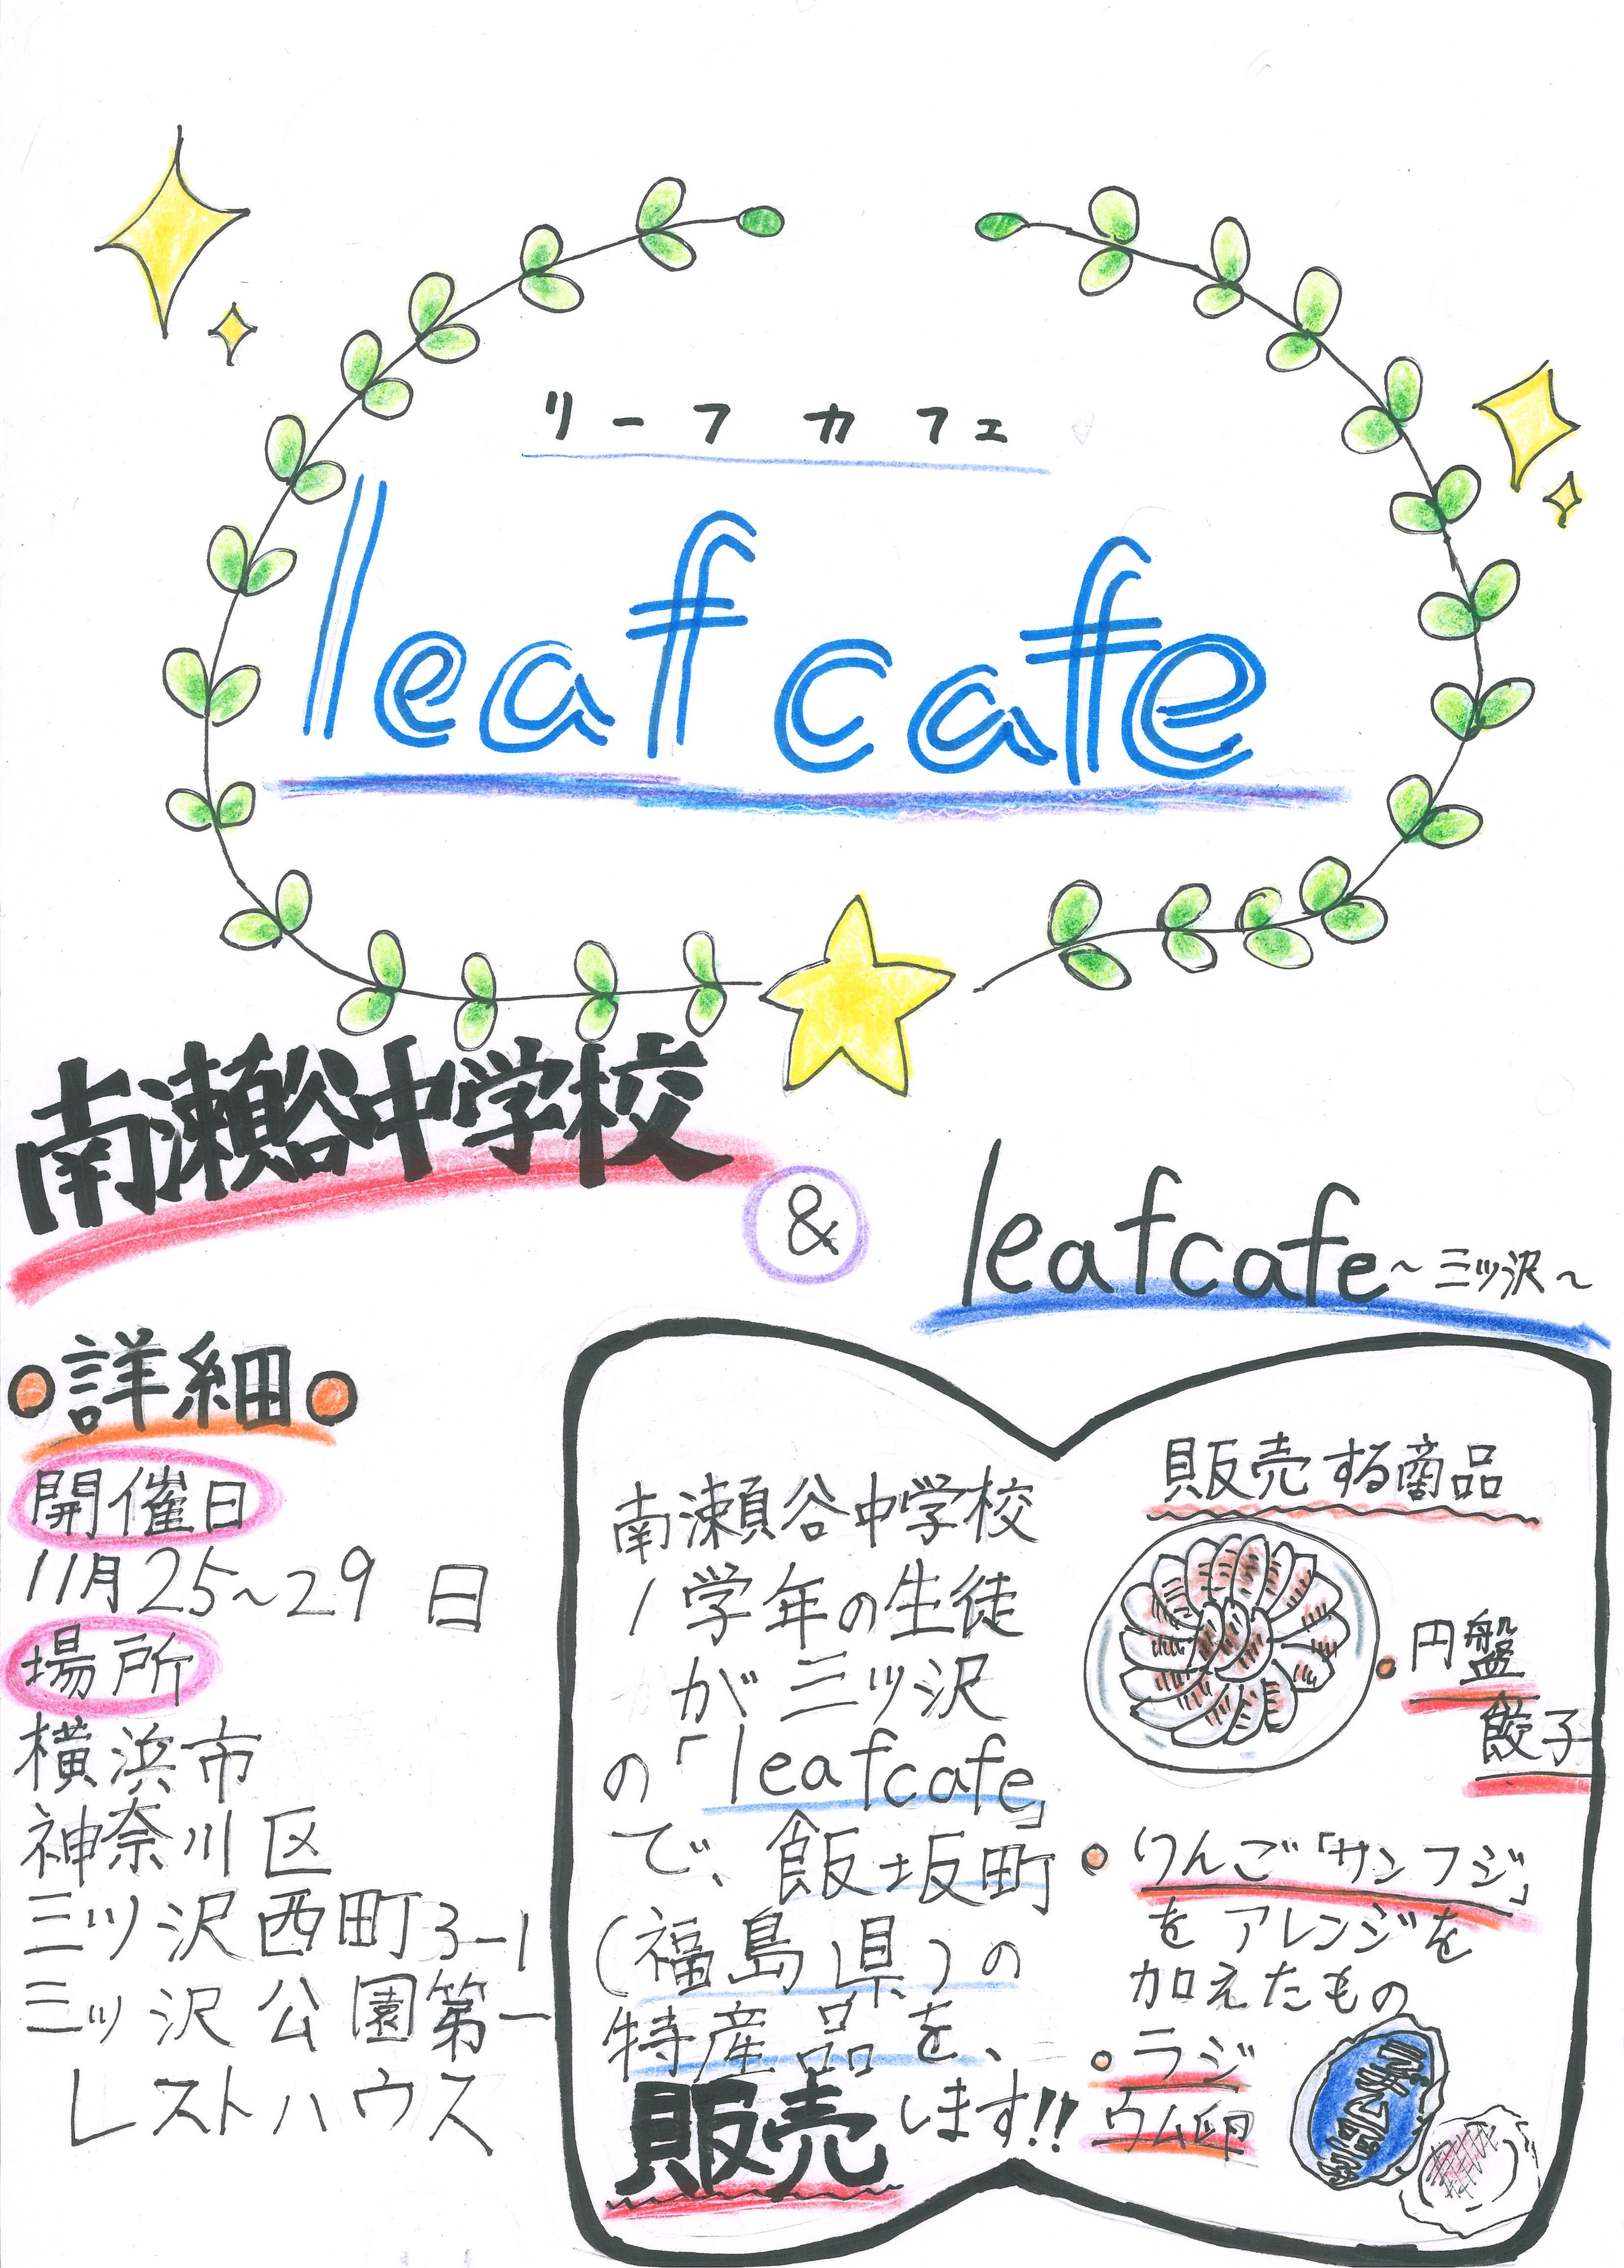 リーフカフェ
leaf cafe
南瀬谷中学校
&
leafcafe～三ツ沢～
詳細
開催日
11月25～29日
場所
横浜市
神奈川区
三ツ沢西町3-1
三ッ沢公園第一
レストハウス
南瀬谷中学校
1学年の生徒
が三ツ沢
の「leafcafe」
で、飯坂町
(福島県)の
特産品を、
販売します!!
販売する商品
・円盤
餃子
・りんご「サンフジ」
をアレンジを
加えたもの
・ラジ
ウム卵